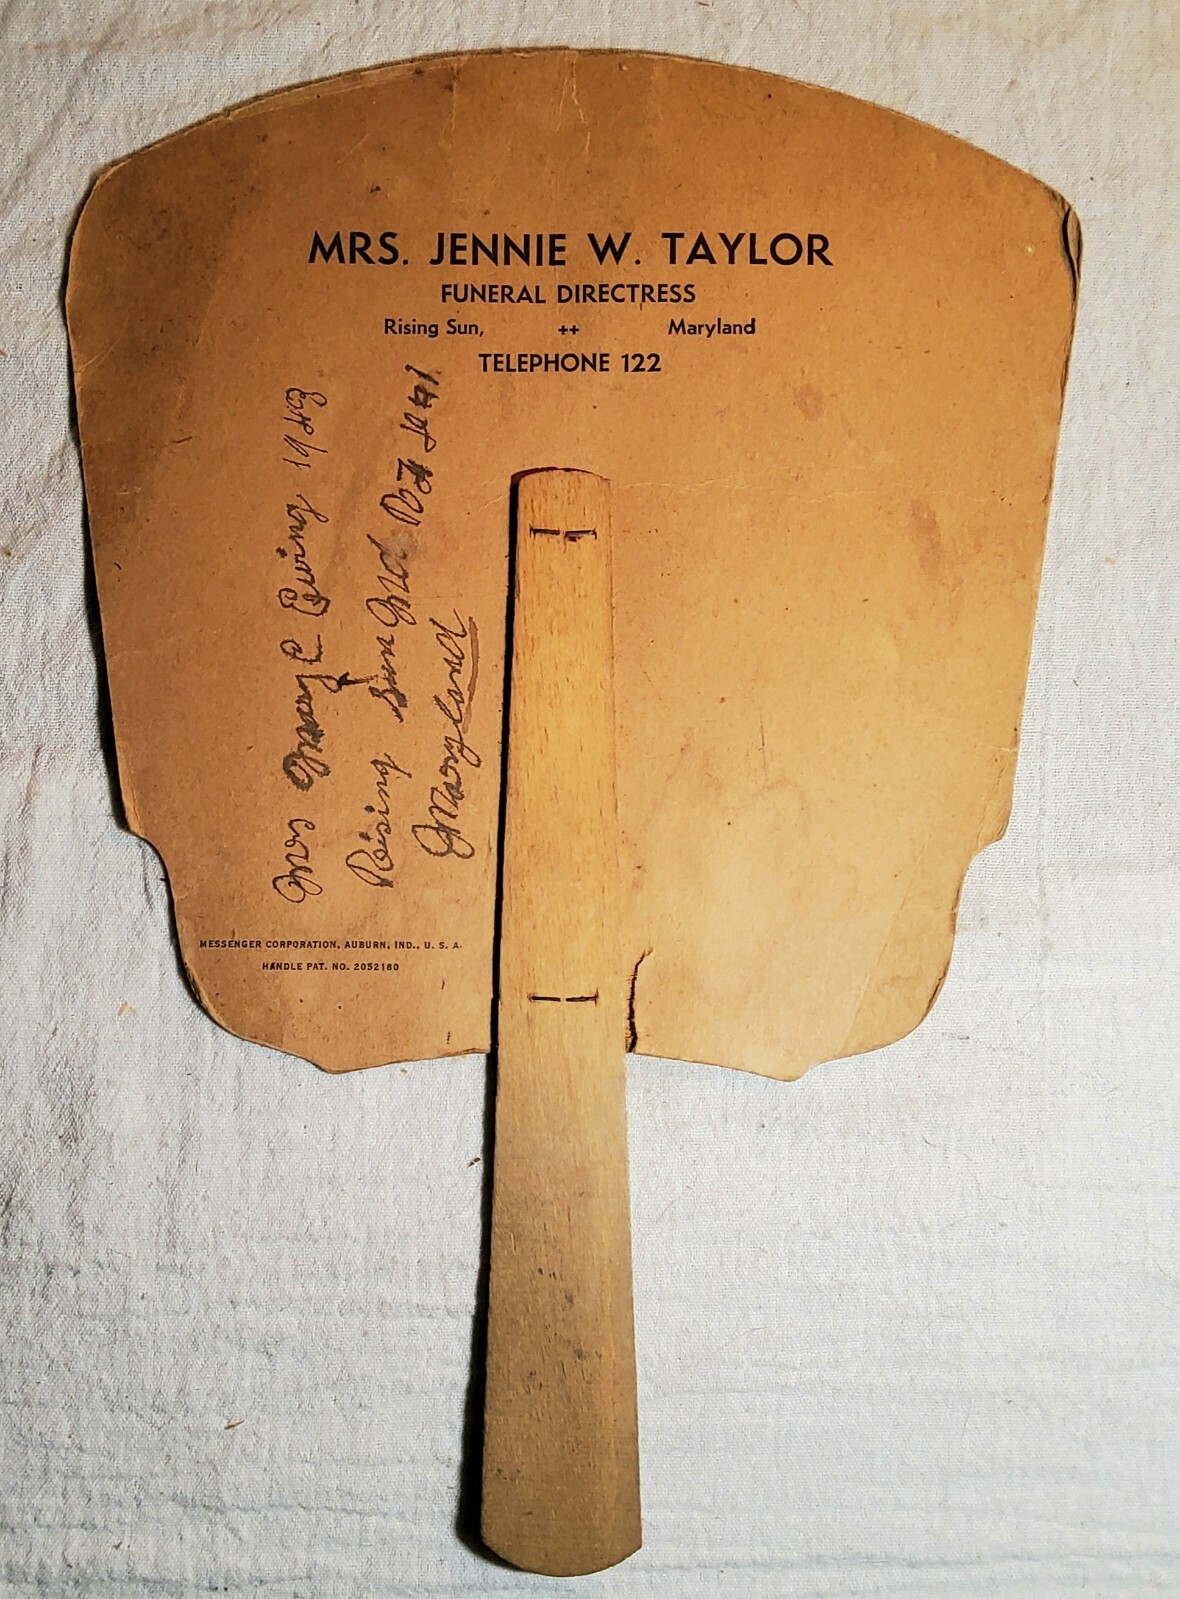 MRS. JENNIE W. TAYLOR
FUNERAL DIRECTRESS
Rising Sun, ++ Maryland
TELEPHONE 122
Mrs Ewing 1943
Rising Sun Md
Maryland
MESSENGER CORPORATION, AUBURN, IND., U. S. A.
HANDLE PAT. NO. 2052180